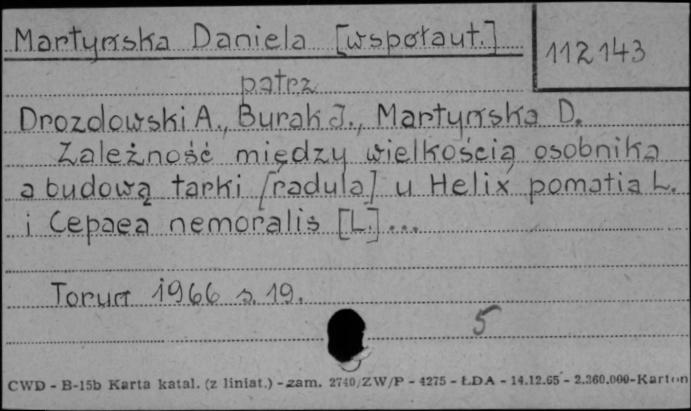 Martyńska Daniela [współaut.]
112143
patrz
Drozdowski A., Burak J., Martyńska D.
Zależność między wielkością osobnika
a budową tarki [radula] u Helix pomatia L.
i Cepaea nemoralis [L.]...
Toruń 1966 s. 19.
5
CWD - B-15b Karta katal. (z liniat.) - zam. 2740/ZW/P - 4275 - ŁDA - 14.12.65 - 2.360.000-Karton